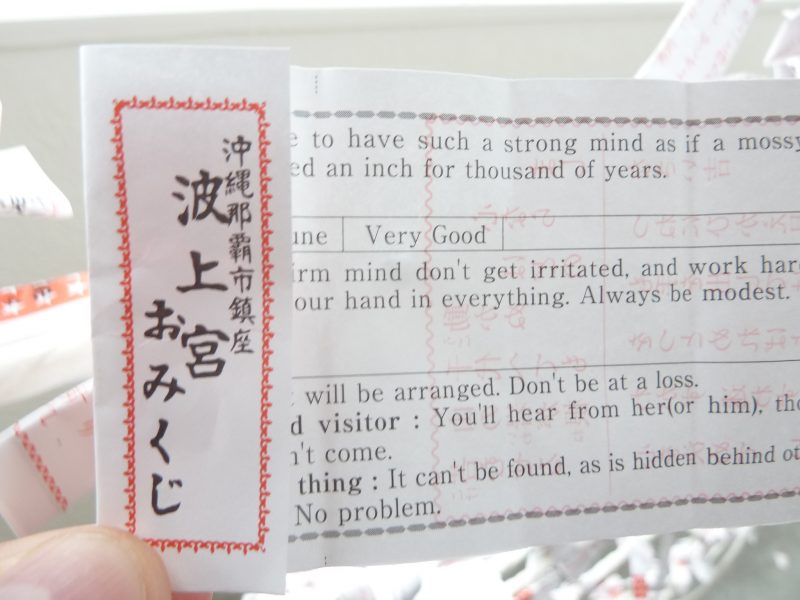 沖縄那覇市鎮座
波上宮
おみくじ
to have such a strong mind as if a mossy
an inch for thousand of years.
Very Good
mind don't get irritated, and work
hand in everything. Always be modest.
will be arranged. Don't be at a loss.
visitor : You'll hear from her(or him),
come.
thing : It can't be found, as is hidden behind
No problem.